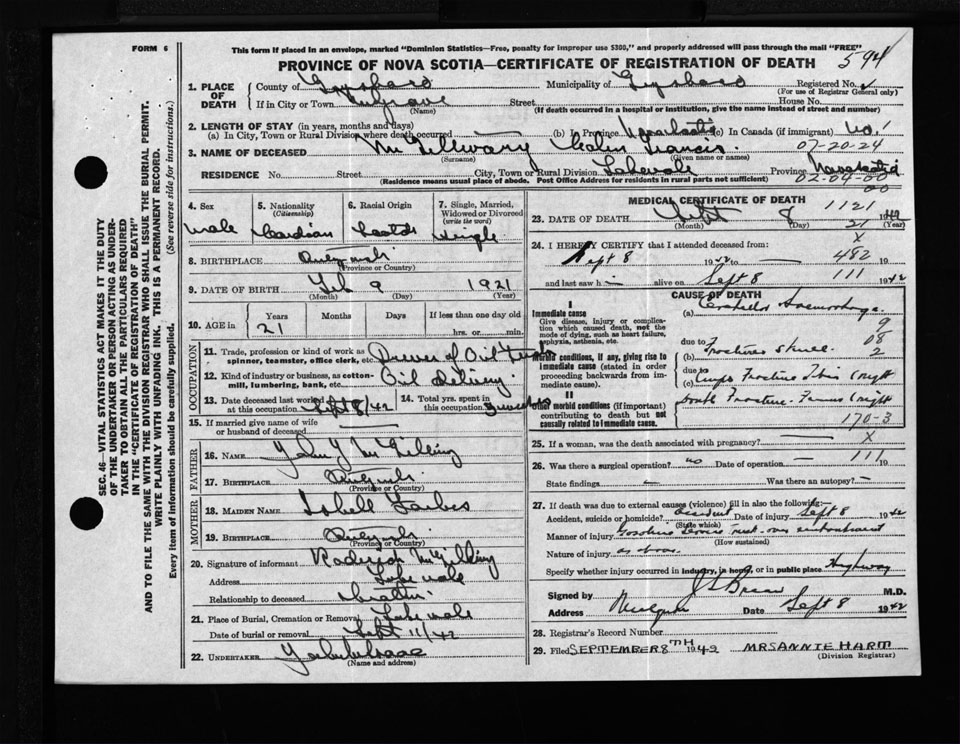 FORM 6
This form if placed in an envelope, marked "Dominion Statistics—Free, penalty for improper use $300," and properly addressed will pass through the mail "FREE"
PROVINCE OF NOVA SCOTIA—CERTIFICATE OF REGISTRATION OF DEATH 594
SEC. 46—VITAL STATISTICS ACT MAKES IT THE DUTY
OF THE UNDERTAKER OR PERSON ACTING AS UNDER-
TAKER TO OBTAIN ALL THE PARTICULARS REQUIRED
IN THE "CERTIFICATE OF REGISTRATION OF DEATH"
AND TO FILE THE SAME WITH THE DIVISION REGISTRAR WHO SHALL ISSUE THE BURIAL PERMIT.
WRITE PLAINLY WITH UNFADING INK. THIS IS A PERMANENT RECORD.
Every item of information should be carefully supplied. (See reverse side for instructions.)
1. PLACE OF DEATH
County of Guysboro Municipality of Guysboro Registered No.
(For use of Registrar General only)
If in City or Town Mulgrave Street House No.
(Name) (If death occurred in a hospital or institution, give the name instead of street and number)
2. LENGTH OF STAY (in years, months and days)
(a) In City, Town or Rural Division where death occurred (b) In Province (c) In Canada (if immigrant) no.
07-20-24
3. NAME OF DECEASED Colin Francis
(Surname) (Given name or names)
RESIDENCE No. Street City, Town or Rural Division Lakevale Province Nova Scotia
(Residence means usual place of abode. Post Office Address for residents in rural parts not sufficient)
02-04-00
00
4. Sex male
5. Nationality (Citizenship) Canadian
6. Racial Origin Scotch
7. Single, Married, Widowed or Divorced (write the word) Single
8. BIRTHPLACE
(Province or Country)
9. DATE OF BIRTH Feb 9 1921
(Month) (Day) (Year)
10. AGE in Years Months Days If less than one day old
21 hrs. or min.
OCCUPATION
11. Trade, profession or kind of work as spinner, teamster, office clerk, etc. Driver of Oil Truck
12. Kind of industry or business, as cotton-mill, lumbering, bank, etc. Oil Delivery
13. Date deceased last worked at this occupation Sept 8/42
14. Total yrs. spent in this occupation 3 weeks
15. If married give name of wife or husband of deceased
FATHER
16. NAME John J
17. BIRTHPLACE
(Province or Country)
MOTHER
18. MAIDEN NAME Isbell Forbes
19. BIRTHPLACE
(Province or Country)
20. Signature of informant
Address Lakevale
Relationship to deceased Brother
21. Place of Burial, Cremation or Removal Lakevale
Date of burial or removal Sept 11/42
22. UNDERTAKER
(Name and address)
MEDICAL CERTIFICATE OF DEATH 1121
23. DATE OF DEATH Sept 8 1942
(Month) (Day) (Year)
21
X
24. I HEREBY CERTIFY that I attended deceased from:
Sept 8 1942 to 19
482
and last saw h alive on Sept 8 1942
111
CAUSE OF DEATH
I
Immediate cause
Give disease, injury or complication which caused death, not the mode of dying, such as heart failure, asphyxia, asthenia, etc.
(a) Cerebellar Haemorrhage
9
08
2
Morbid conditions, if any, giving rise to immediate cause (stated in order proceeding backwards from immediate cause).
due to
Fractured Skull
due to
(c) Fracture Tibia (right
II
Other morbid conditions (if important) contributing to death but not causally related to immediate cause.
Fracture Femur (right
170-3
25. If a woman, was the death associated with pregnancy? X
111
26. Was there a surgical operation? no Date of operation 19
State findings Was there an autopsy?
27. If death was due to external causes (violence) fill in also the following:
Accident, suicide or homicide? accident Date of injury Sept 8 1942
(State which)
Manner of injury embankment
(How sustained)
Nature of injury as above
Specify whether injury occurred in industry, in home, or in public place Highway
Signed by M.D.
Address Date Sept 8 1942
28. Registrar's Record Number
29. Filed SEPTEMBER 8TH 1942 MRS ANNIE HART
(Division Registrar)